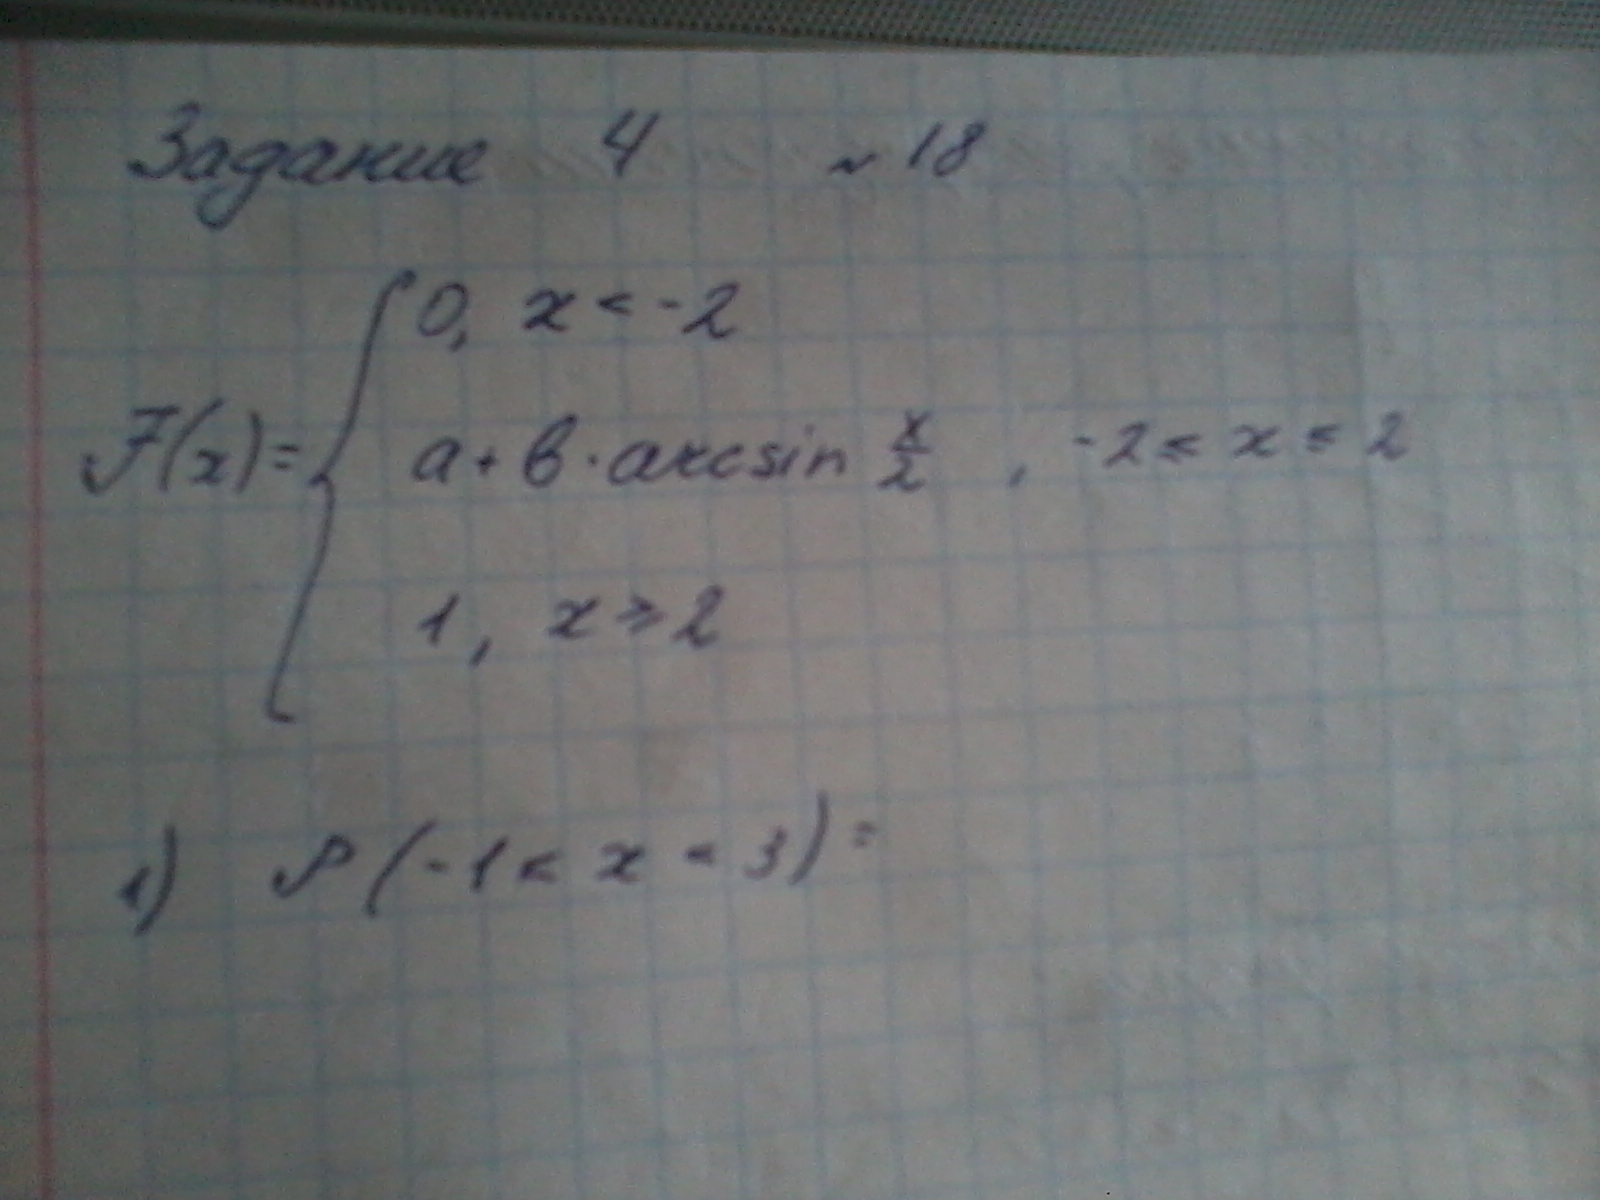 Задание 4 №18
0, x < -2
F(x)= { a + b · arcsin x/2 , -2 ≤ x ≤ 2
1, x > 2
1) P(-1 < x < 3) =